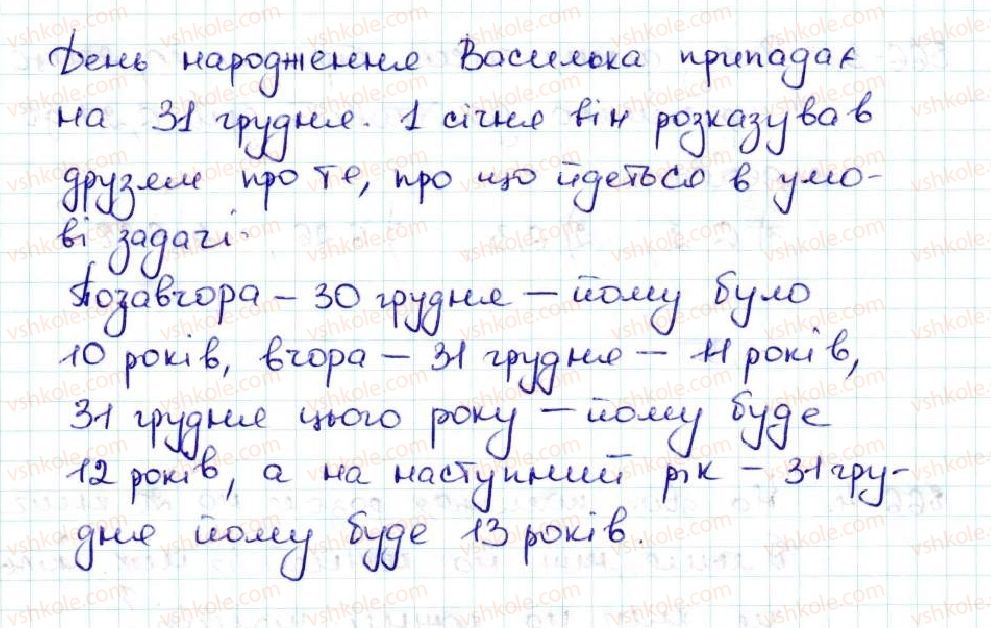 День народження Василька припадає
на 31 грудня. 1 січня він розказував
друзям про те, про що йдеться в умо-
ві задачі.
Позавчора – 30 грудня – йому було
10 років, вчора – 31 грудня – 11 років,
31 грудня цього року – йому буде
12 років, а на наступний рік – 31 гру-
дня йому буде 13 років.